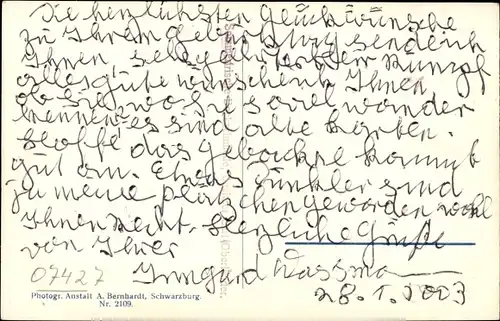 Die herzlichsten Glückwünsche
zu Ihrem Geburtstag sende ich
Ihnen, sehr geehrter Herr Rumpf
alles gute wünschend. Ihnen
ob sie wo sie soviel wander
kennen es sind alte Karten.
Hoffe das gebackne kommt
gut an. Etwas dunkler sind
zu meine plätzchen geworden wohl
Ihnen recht. Herzliche Grüße
von Ihrer
Irmgard Wassma
28.1.2003
07427
Photogr. Anstalt A. Bernhardt, Schwarzburg.
Nr. 2109.